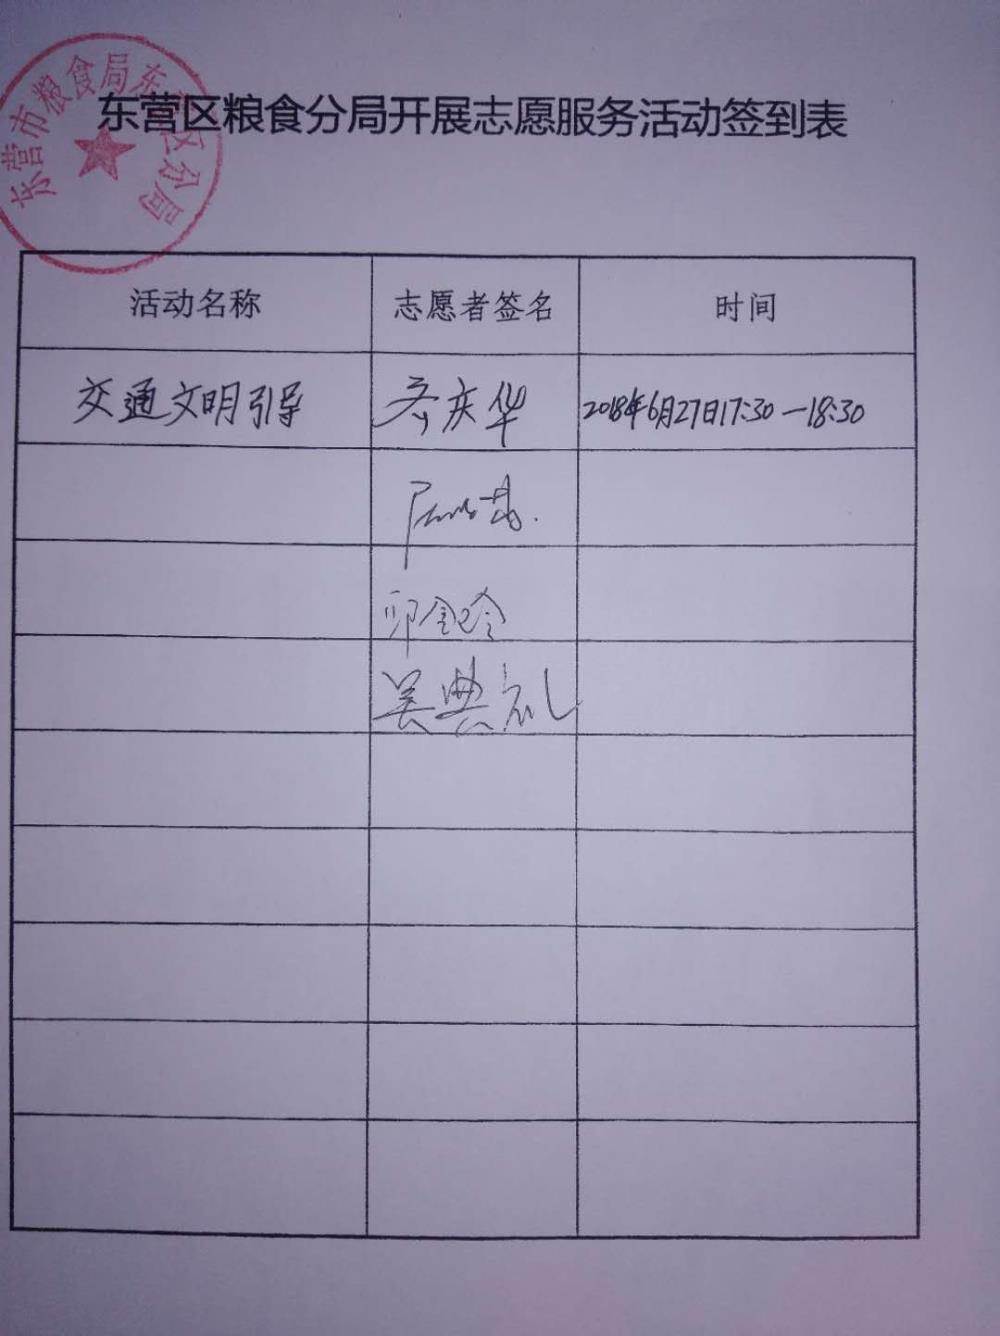 东营市粮食局东营区分局
东营区粮食分局开展志愿服务活动签到表
活动名称 志愿者签名 时间
交通文明引导 齐庆华 2018年6月27日17:30—18:30
邱金玲
吴典礼